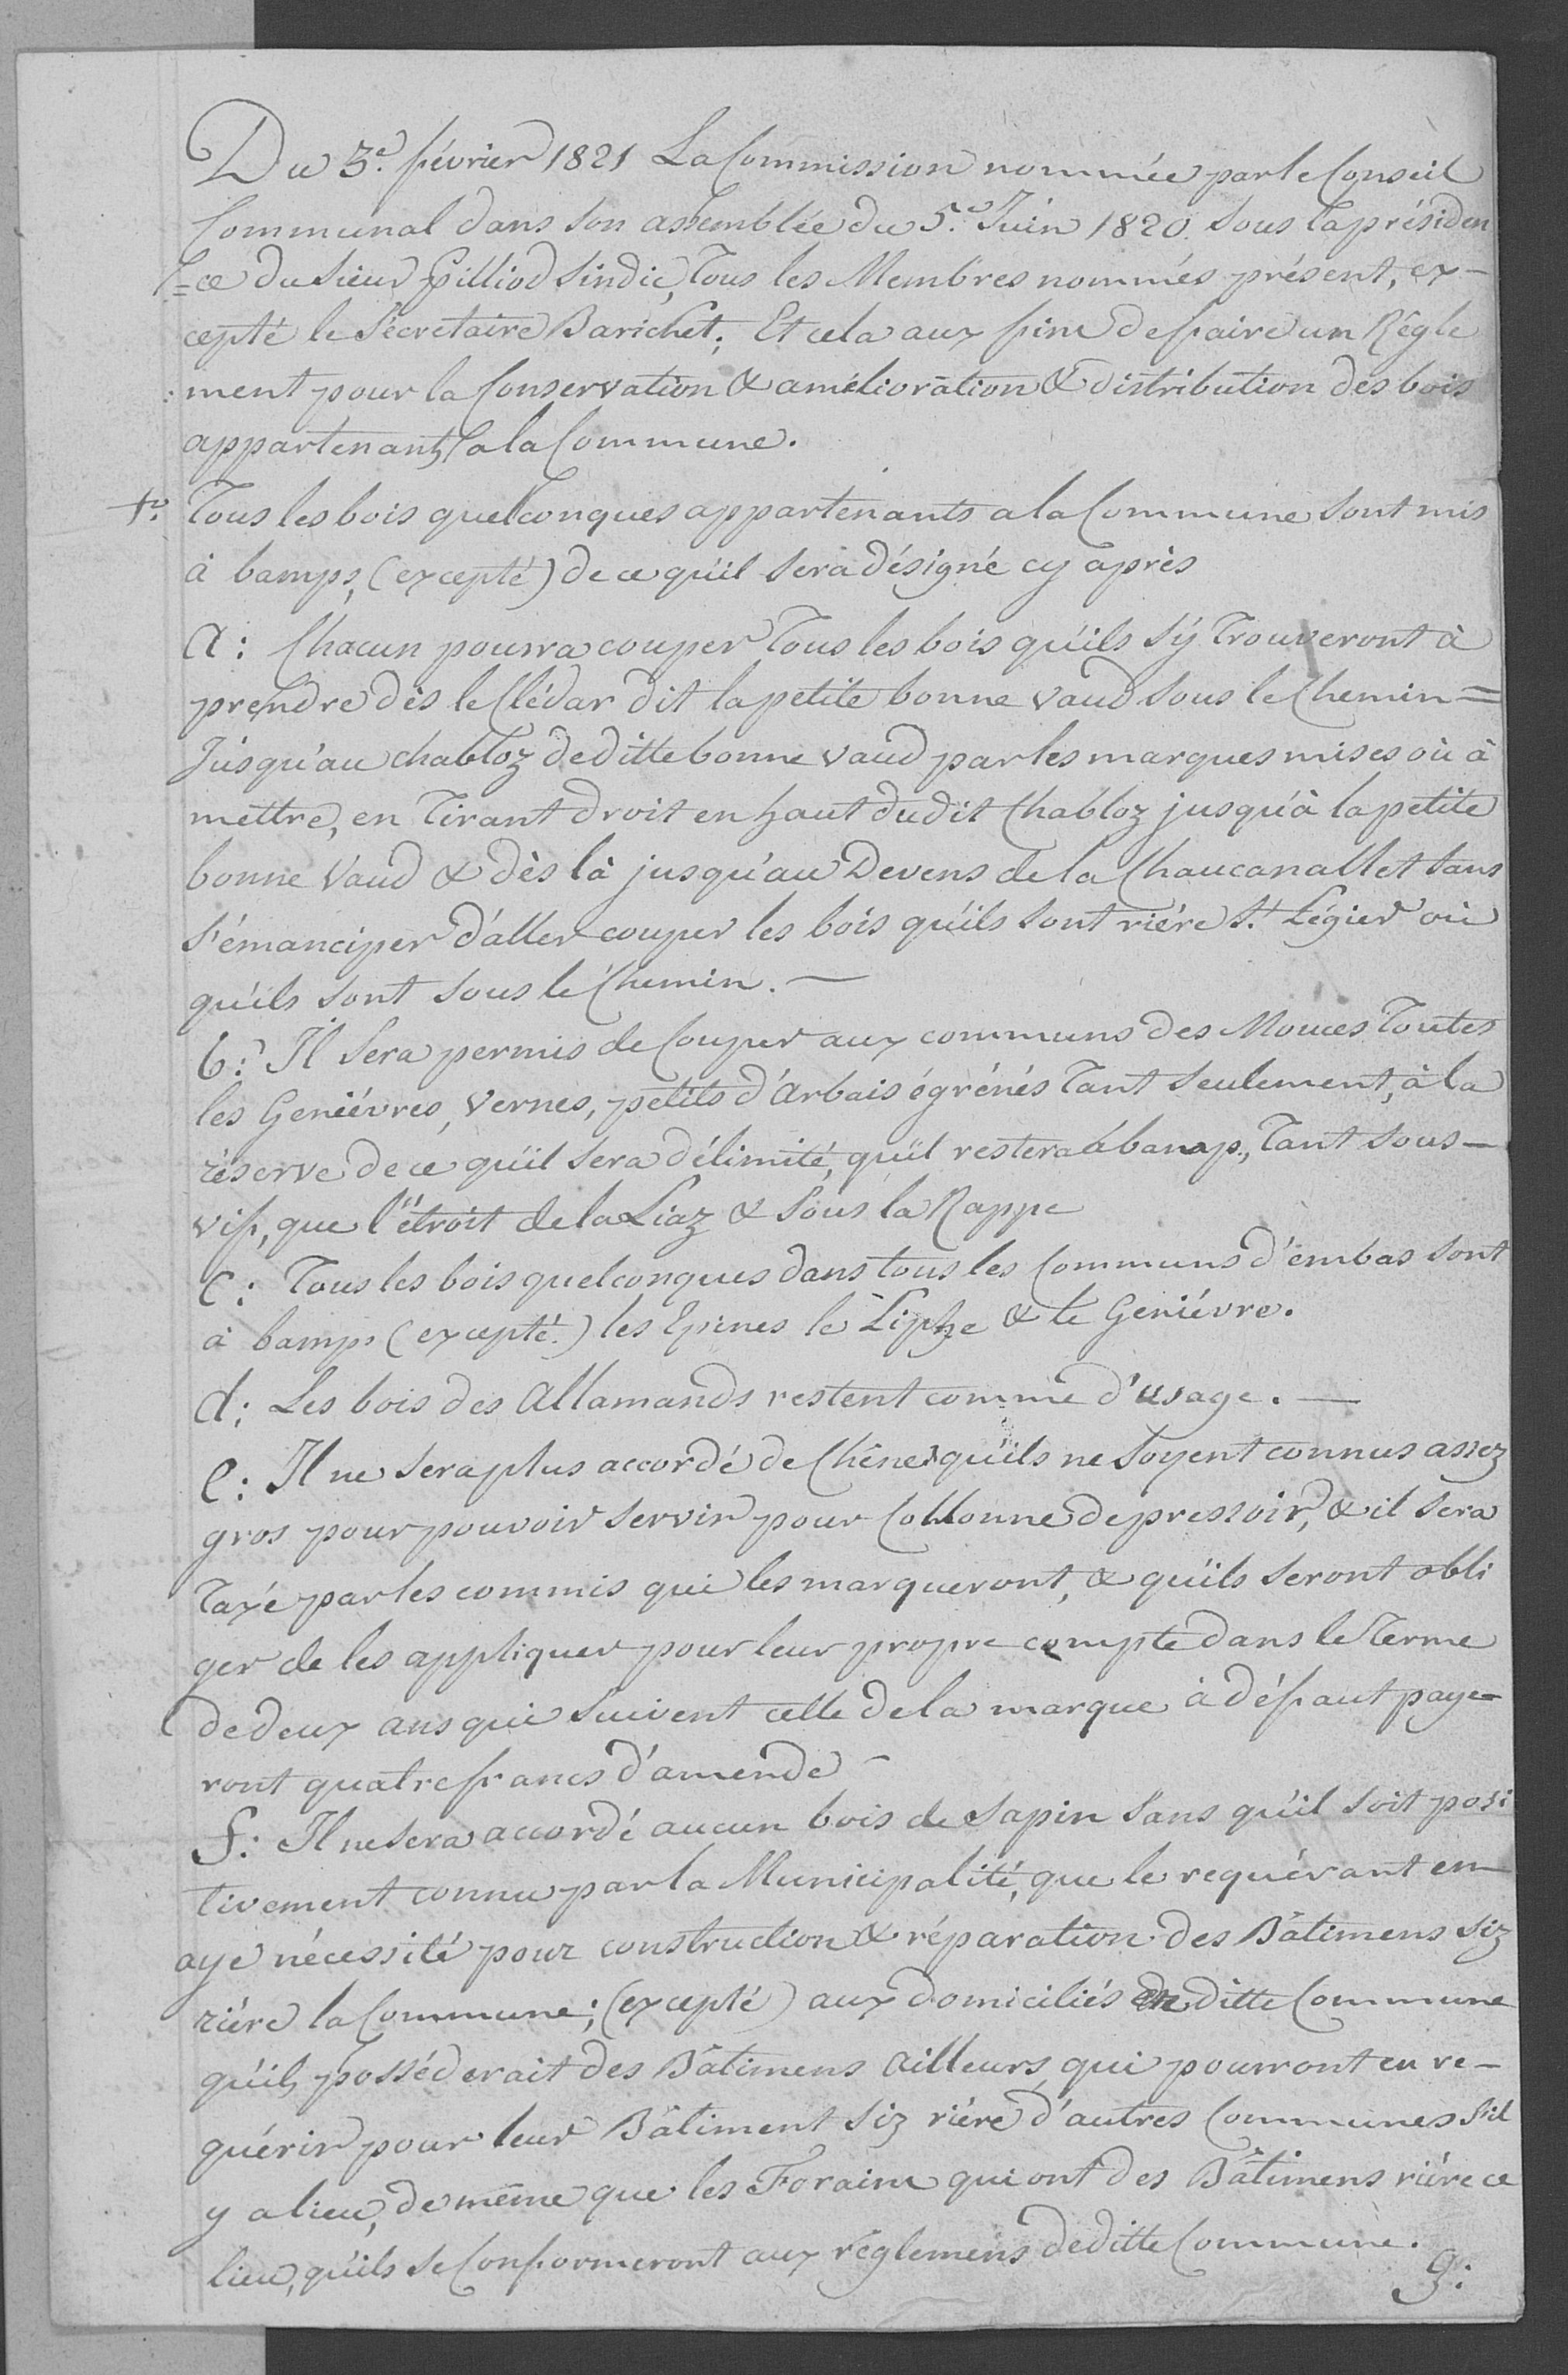 Du 3.e février 1821 La Commission nommée par le Conseil
Communal dans son assemblée du 5.e Juin 1820. sous la présiden
=ce du Sieur Gilliod Sindic, Tous les Membres nommés présent, ex-
cepté le Sécretaire Barichet; Et cela aux fins de faire un Régle
:ment pour la Conservation & amélioration & distribution des bois
appartenants a la Commune.
1.o Tous les bois quelconques appartenants a la Commune sont mis
à bamps, (excepté) de ce qu'il sera désigné cy après
a: Chacun pourra couper Tous les bois qu'ils s'ÿ Trouveront à
prendre dès le Clédar dit la petite bonne vaud sous le Chemin =
Jusqu'au chabloz de ditte bonne vaud par les marques mises où à
mettre, en Tirant droit en haut dudit Chabloz jusqu'à la petite
bonne Vaud & dès là jusqu'au Devens de la Chaucanallet sans
s'émanciper d'aller couper les bois qu'ils sont riére St. Légier où
qu'ils sont sous le Chemin. —
b: Il sera permis de Couper aux communs des Mouces Toutes
les Geniévres, Vernes, petits d'Arbais égrénés Tant seulement, à la
réserve de ce qu'il sera délimité, qu'il restera à banp., Tant sous-
vif, que l'étroit de la Liaz & sous la Rappe
c: Tous les bois quelconques dans tous les Communs d'embas sont
à bamps (excepté.) les Epines le Liphe & le Geniévre.
d: Les bois des Allamands restent comme d'usage. —
e: Il ne sera plus accordé de Chênes qu'ils ne soyent connus assez
gros pour pouvoir servir pour Collonne de pressoir, & il sera
Taxé par les commis qui les marqueront, & qu'ils seront obli
ger de les appliquer pour leur propre compte dans le Terme
de deux ans qui suivent celle de la marque à défaut paye=
ront quatre francs d'amende —
f: Il ne sera accordé aucun bois de sapin sans qu'il soit posi
tivement connu par la Municipalité, que le requérant en
aye nécessité pour construction & réparation des Bâtimens siz
riére la Commune; (excepté) aux domiciliés de ditte Commune
qu'ils posséderait des Bâtimens ailleurs, qui pourront en re-
quérir pour leur Bâtiment siz riére d'autres Communes s'il
y a lieu, de même que les Forains qui ont des Bâtimens riére ce
lieu, qu'ils se Conformeront aux réglemens de ditte Commune.
g: